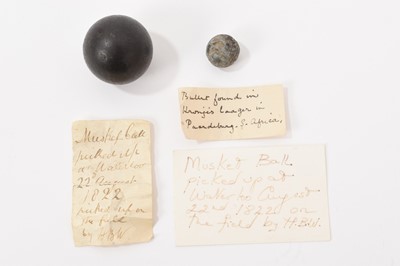 Bullet found in
Kronje's laager in
Paardeburg. S. Africa.
Musket Ball
picked up
at Waterloo
22nd August
1822
picked up on
the field
by
Musket Ball
picked up at
Waterloo August
22nd 1822 on
the field by H.